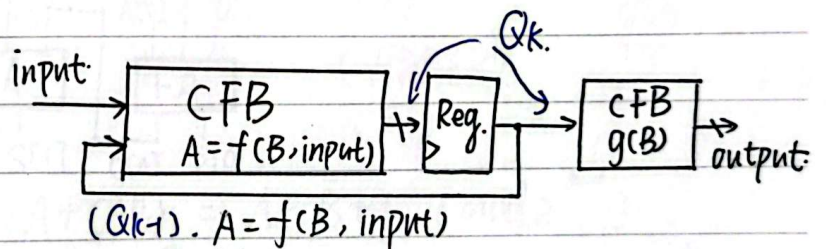 QK.
input.
CFB
A=f(B,input)
Reg.
CFB
g(B)
output.
(QK-1). A=f(B, input)